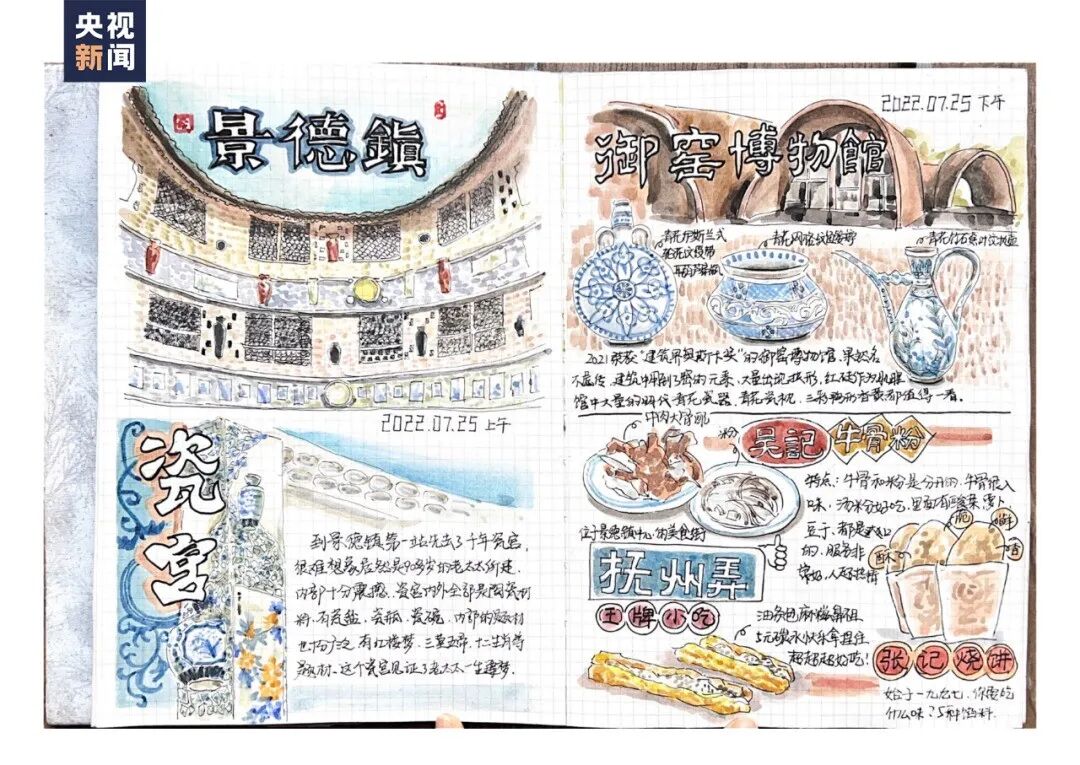 央视
新闻
景德鎮
2022.07.25 上午
瓷宫
到景德镇第一站先去了千年瓷宫,
很难想象居然是90多岁的老太太所建,
内部十分震撼、瓷宫内外全部是陶瓷材
料、有瓷盘、瓷瓶、瓷碗、内部的题材
也十分广泛,有红楼梦、三皇五帝、十二生肖等
等题材、这个瓷宫见证了老太太一生瓷梦。
2022.07.25 下午
御窑博物館
2021荣获“建筑界奥斯卡奖”的御窑博物馆、果然名
不虚传、建筑中用到了窑的元素、大量出现拱形,红砖作为肌理
馆中大量的明代青花瓷器、青花瓷枕、三彩鸭形香薰都值得一看。
粉
吴記 牛骨粉
特点:牛骨和米粉是分开的、牛骨很入
味、汤米分好吃、里面有酸菜、萝卜
豆丁、都是
的、服务非
常好,人还热情
位于景德镇中心的美食街
抚州弄
王牌小吃
油条包麻糍鼻祖
5元碳水快乐拿捏住
超超超好吃!
酥
脆
鲜
香
张记烧饼
始于一九九七,你要吃
什么味?5种馅料.